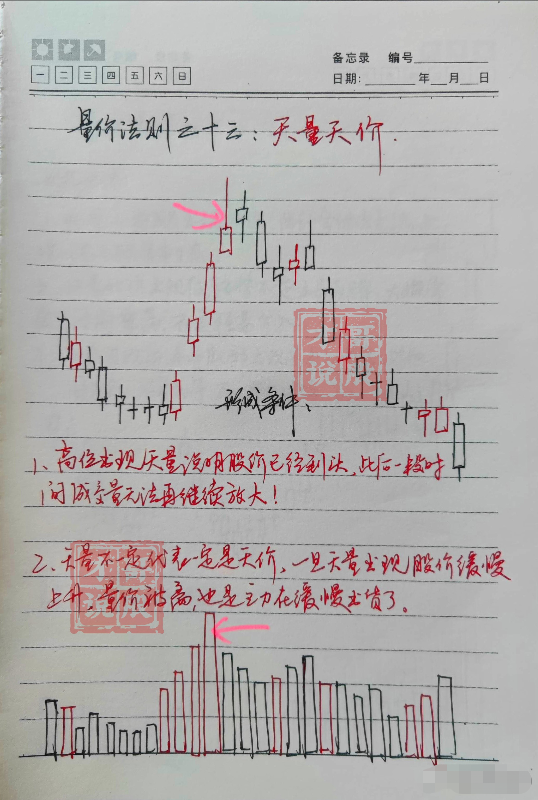 备忘录 编号
一 二 三 四 五 六 日
日期: 年 月 日
量价法则之十三:天量天价.
形成条件:
1、高位出现天量说明股价已经到头,此后一段时
间成交量无法再继续放大!
2、天量不一定代表一定是天价,一旦天量出现股价缓慢
上升,量价背离,也是主力在缓慢出货了。